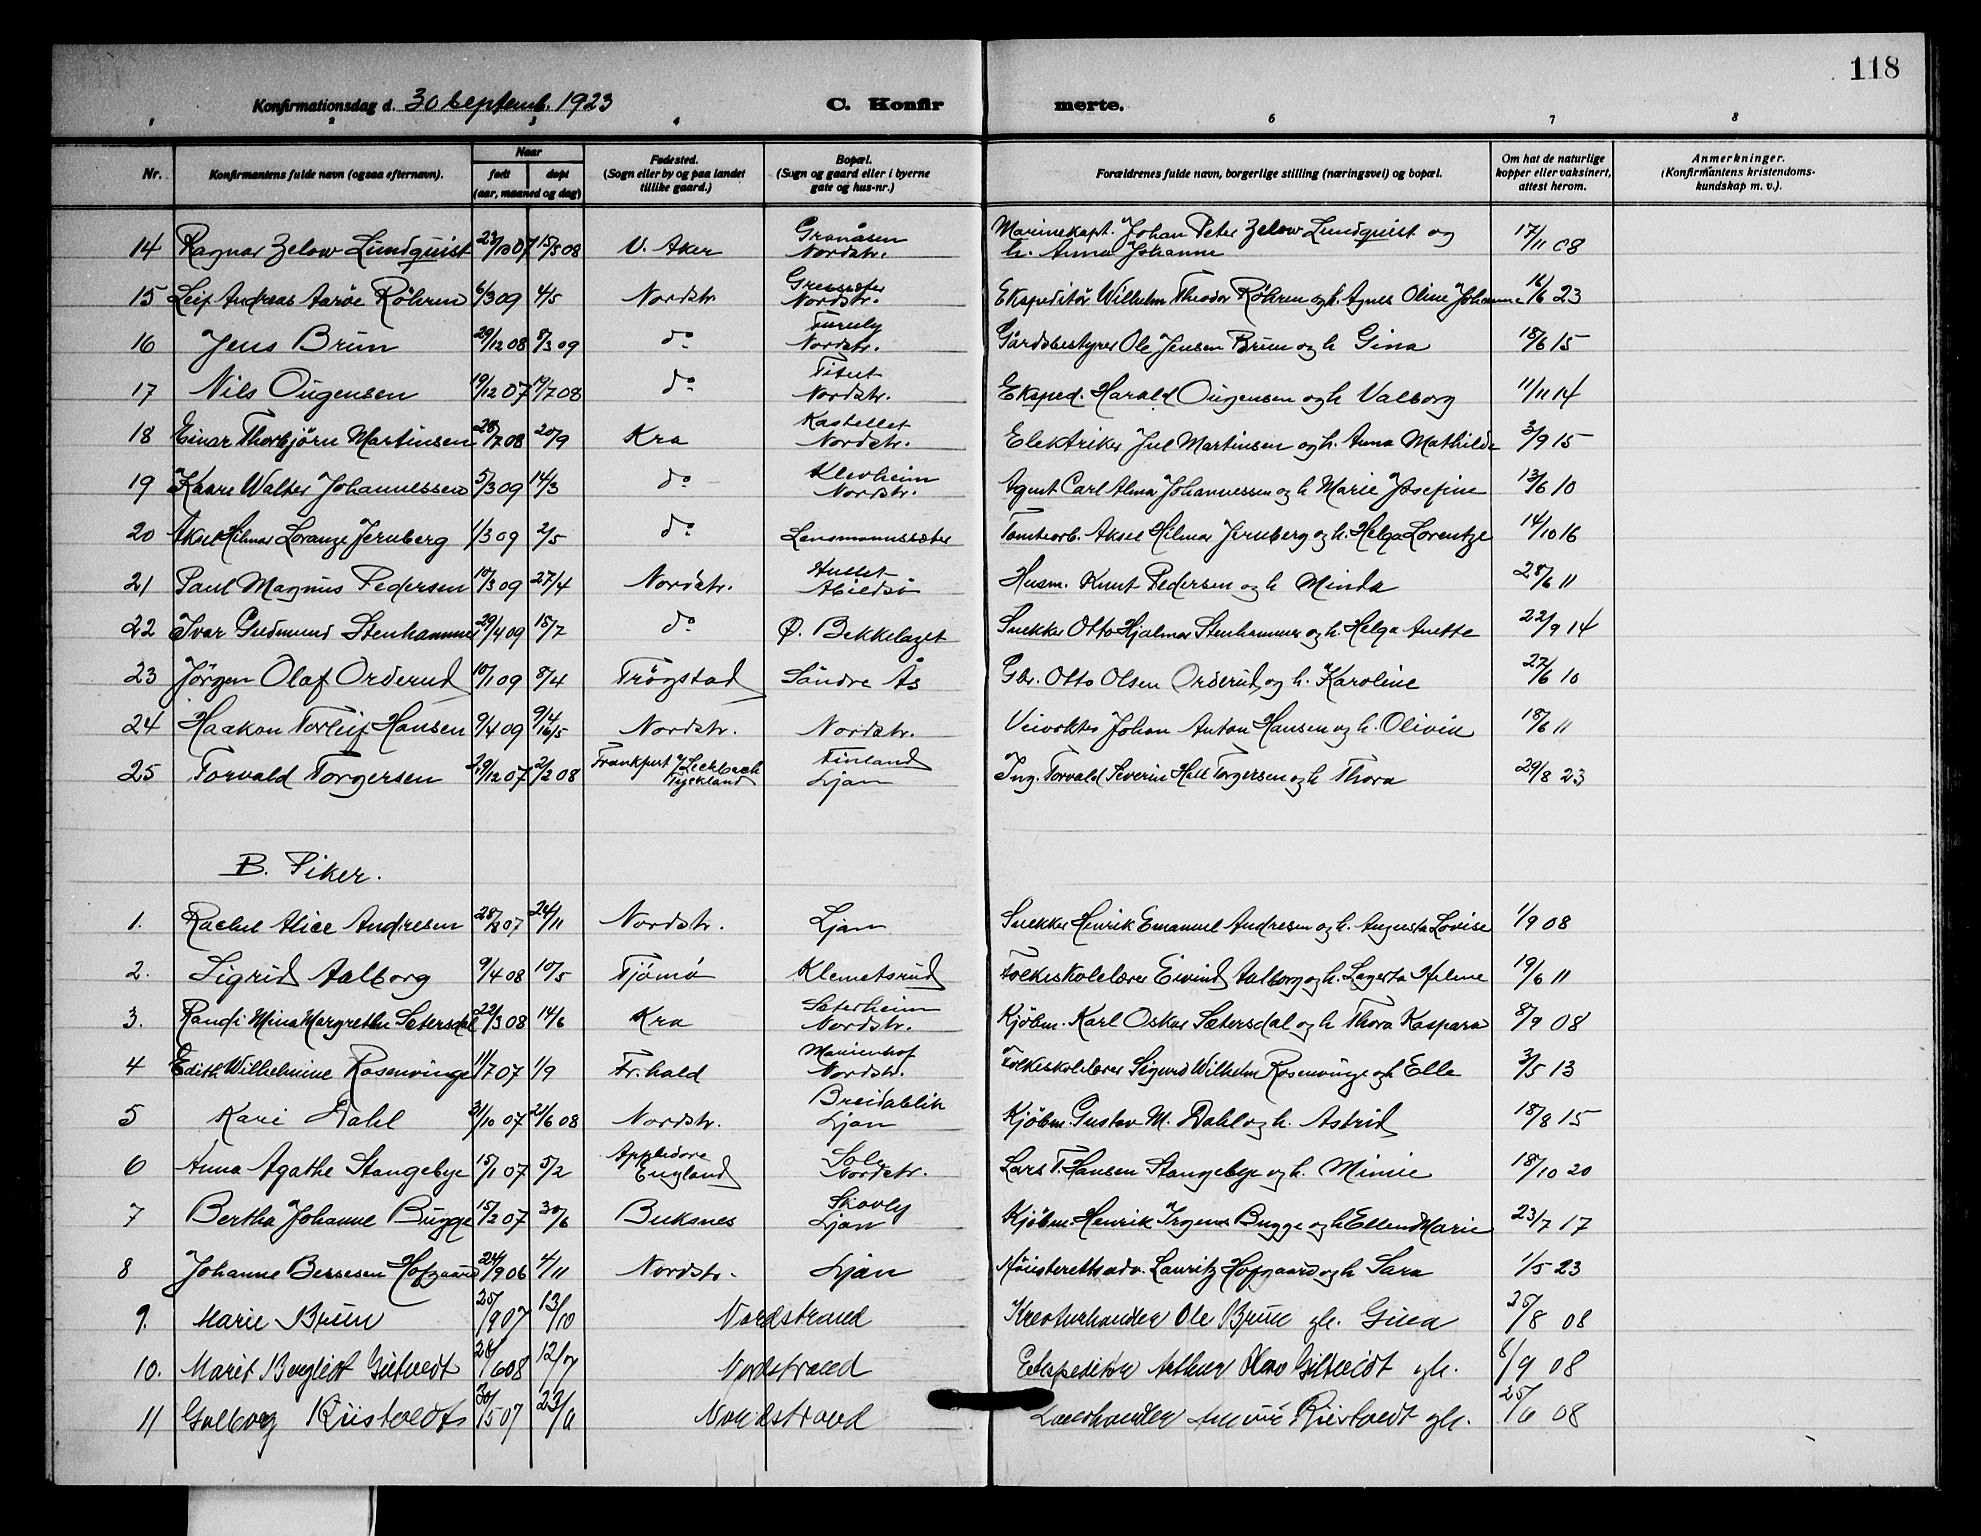 118
Konfirmationsdag d. 30 Septemb. 1923 C. Konfir merte.
1 2 3 4 6 7 8
Nr. Konfirmantens fulde navn (ogsaa efternavn). Naar født døpt (aar, maaned og dag) Fødested. (Sogn eller by og paa landet tillike gaard.) Bopæl. (Sogn og gaard eller i byerne gate og hus-nr.) Forældrenes fulde navn, borgerlige stilling (næringsvei) og bopæl. Om hat de naturlige kopper eller vaksinert, attest herom. Anmerkninger. (Konfirmantens kristendoms-kundskap m. v.).
14 Ragnar Zelow Lundquist 23/10 07 15/3 08 V. Aker Granåsen Nordstr. Marinekapt. Johan Peter Zelow Lundquist og h. Anna Johanne 17/11 08
15 Leif Andreas Aaröe Röhren 6/3 09 4/5 Nordstr Nordstr. Ekspeditör Wilhelm Theodor Röhren og h. Agnes Oline Johanne 16/6 23
16 Jens Brun 29/12 08 8/3 09 do Furuly Nordstr. Gårdsbestyrer Ole Jensen Brun og h Gina 18/6 15
17 Nils Ougensen 19/12 07 19/7 08 do Titut Nordstr. Eksped. Harald Ougensen og h Valborg 11/11 14
18 Einar Thorbjörn Martinsen 28/7 08 20/9 Kra Kastellet Nordstr. Elektriker Jul Martinsen og h. Anna Mathilde 3/9 15
19 Kaare Walter Johannessen 5/3 09 14/3 do Klevheim Nordstr. Agent Carl Alma Johannessen og h Marie Josefine 13/6 10
20 Aksel Hilmar Lorange Jernberg 1/3 09 2/5 do Lensmannssæter Tomtearb. Aksel Hilmar Jernberg og h. Helga Lorentze 14/10 16
21 Paul Magnus Pedersen 10/3 09 27/4 Nordstr. Hullet Abildsö Husm. Knut Pedersen og h Minda 28/6 11
22 Ivar Gudmund Stenhammer 29/4 09 18/7 do Ø. Bekkelaget Snekker Otto Hjalmar Stenhammer og h. Helga Anette 22/9 14
23 Jörgen Olaf Orderud 10/1 09 8/4 Trögstad Söndre Ås Gbr. Otto Olsen Orderud og h. Karoline 27/6 10
24 Haakon Norleif Hansen 9/4 09 9/4 16/5 Nordstr. Nordstr. Veivokter Johan Anton Hansen og h. Olivia 18/6 11
25 Torvald Torgersen 29/12 07 2/2 08 Frankfurt Tyskland Finland Ljan Ing. Torvald Severin Hall Torgersen og h Thora 29/8 23
B. Piker.
1. Rachel Alice Andresen 28/8 07 24/11 Nordstr. Ljan Snekker Henrik Emanuel Andresen og h. Augusta Lovise 1/9 08
2. Sigrid Aalborg 9/4 08 10/5 Tjömö Klemetsrud Folkeskolelærer Eivind Aalborg og h. Lagerta Helene 19/6 11
3. Randi Mina Margrethe Sætersdal 22/3 08 14/6 Kra Sæterheim Nordstr. Kjöbm. Karl Oskar Sætersdal og h Thora Kaspara 8/9 08
4 Edith Wilhelmine Rosenvinge 11/7 07 1/9 Fr.hald Marienhof Nordstr. Folkeskolelærer Sigurd Wilhelm Rosenvinge og h Elle 3/5 13
5 Kari Dahl 31/10 07 21/6 08 Nordstr. Breidablik Ljan Kjöbm Gustav M. Dahl og h. Astrid 18/8 15
6 Anna Agathe Stangebye 15/1 07 5/2 Appledore England Sole Nordstr. Lars T. Hansen Stangebye og h. Minnie 18/10 20
7 Bertha Johanne Bugge 15/2 07 30/6 Buksnes Skovly Ljan Kjöbm. Henrik Irgens Bugge og h Ellen Marie 23/7 17
8 Johanne Bessesen Hofgaard 24/9 06 4/11 Nordstr. Ljan Höiesterettsadv. Lauritz Hofgaard og h Sara 1/5 23
9. Marie Bruun 25/9 07 13/10 Nordstrand Kreaturhandler Ole Bruun gh. Gina 25/8 08
10. Marit Bergljot Giltvedt 28/6 08 12/7 Nordstrand Ekspeditör Arthur Olav Giltvedt gh. 6/9 08
11 Solborg Ristvedt 30/5 07 23/6 Nordstrand Ristvedt gh. 25/6 08